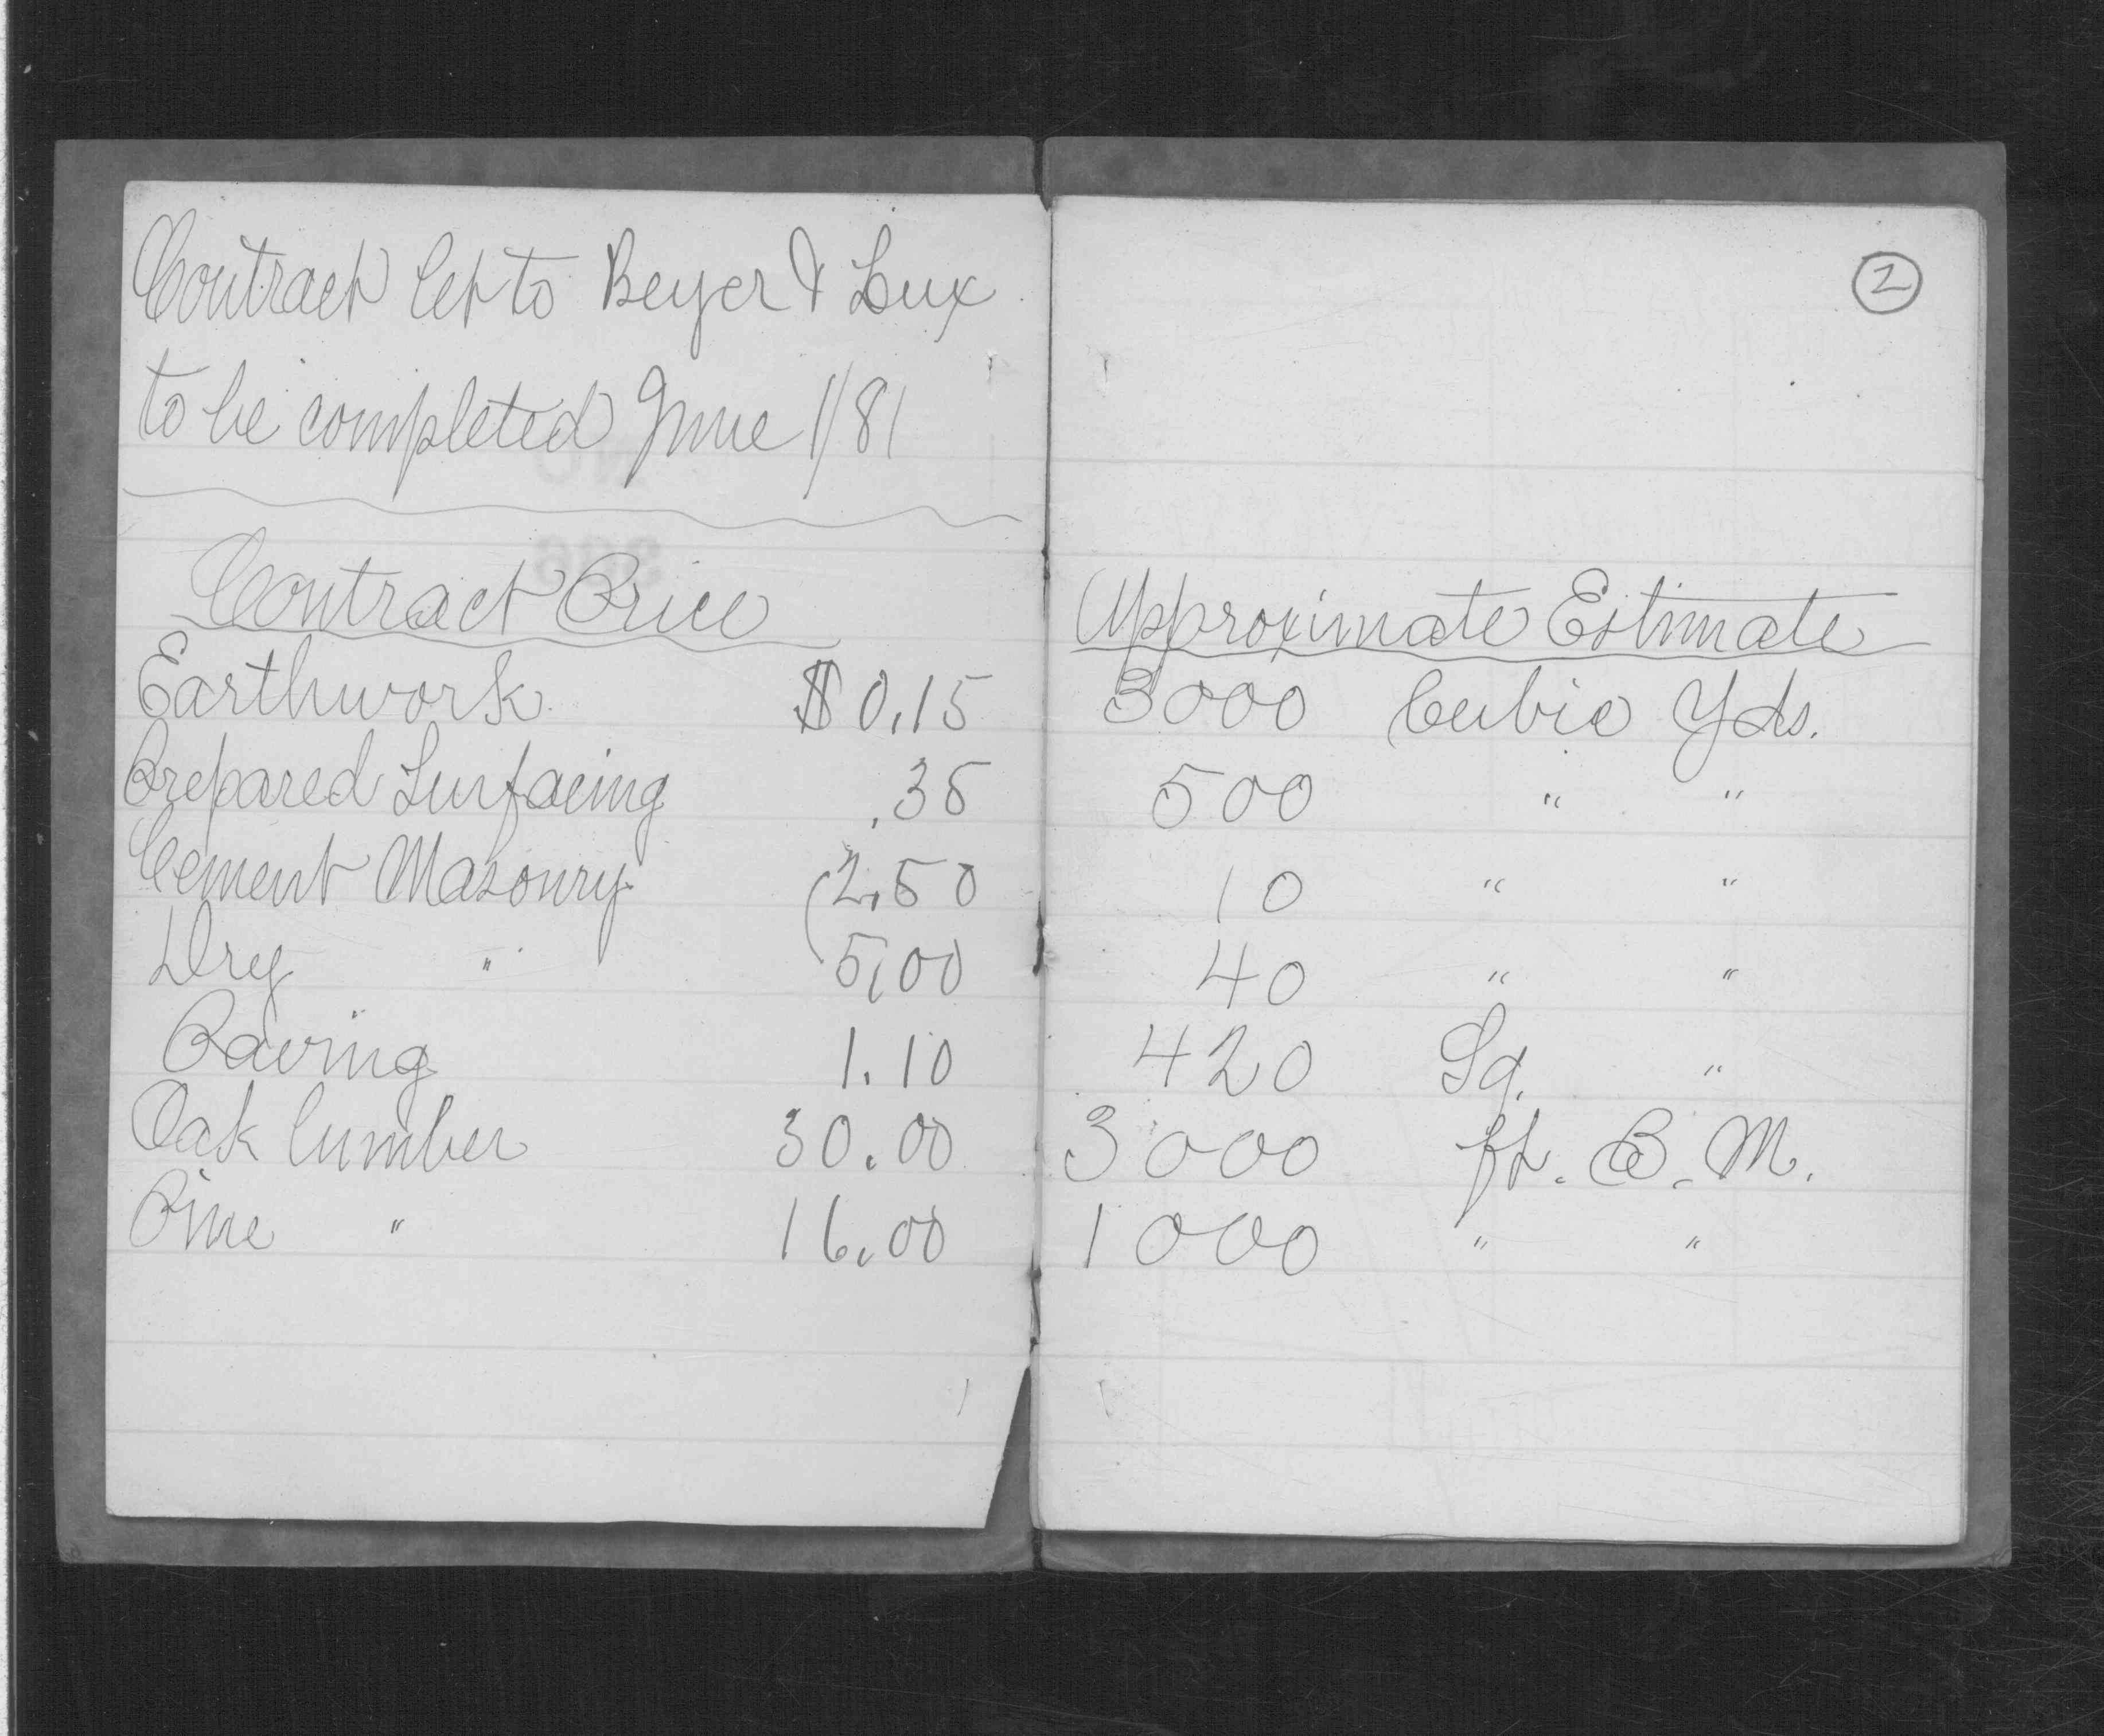 Contract let to Beyer & Lux
to be completed June 1/81
Contract Price
Earthwork $0.15
Prepared Surfacing .35
Cement Masonry (2.50
Dry " (5.00
Paving 1.10
Oak lumber 30.00
Pine " 16.00
2
Approximate Estimate
3000 Cubic Yds.
500 " "
10 " "
40 " "
420 Sq. "
3000 ft. B. M.
1000 " "